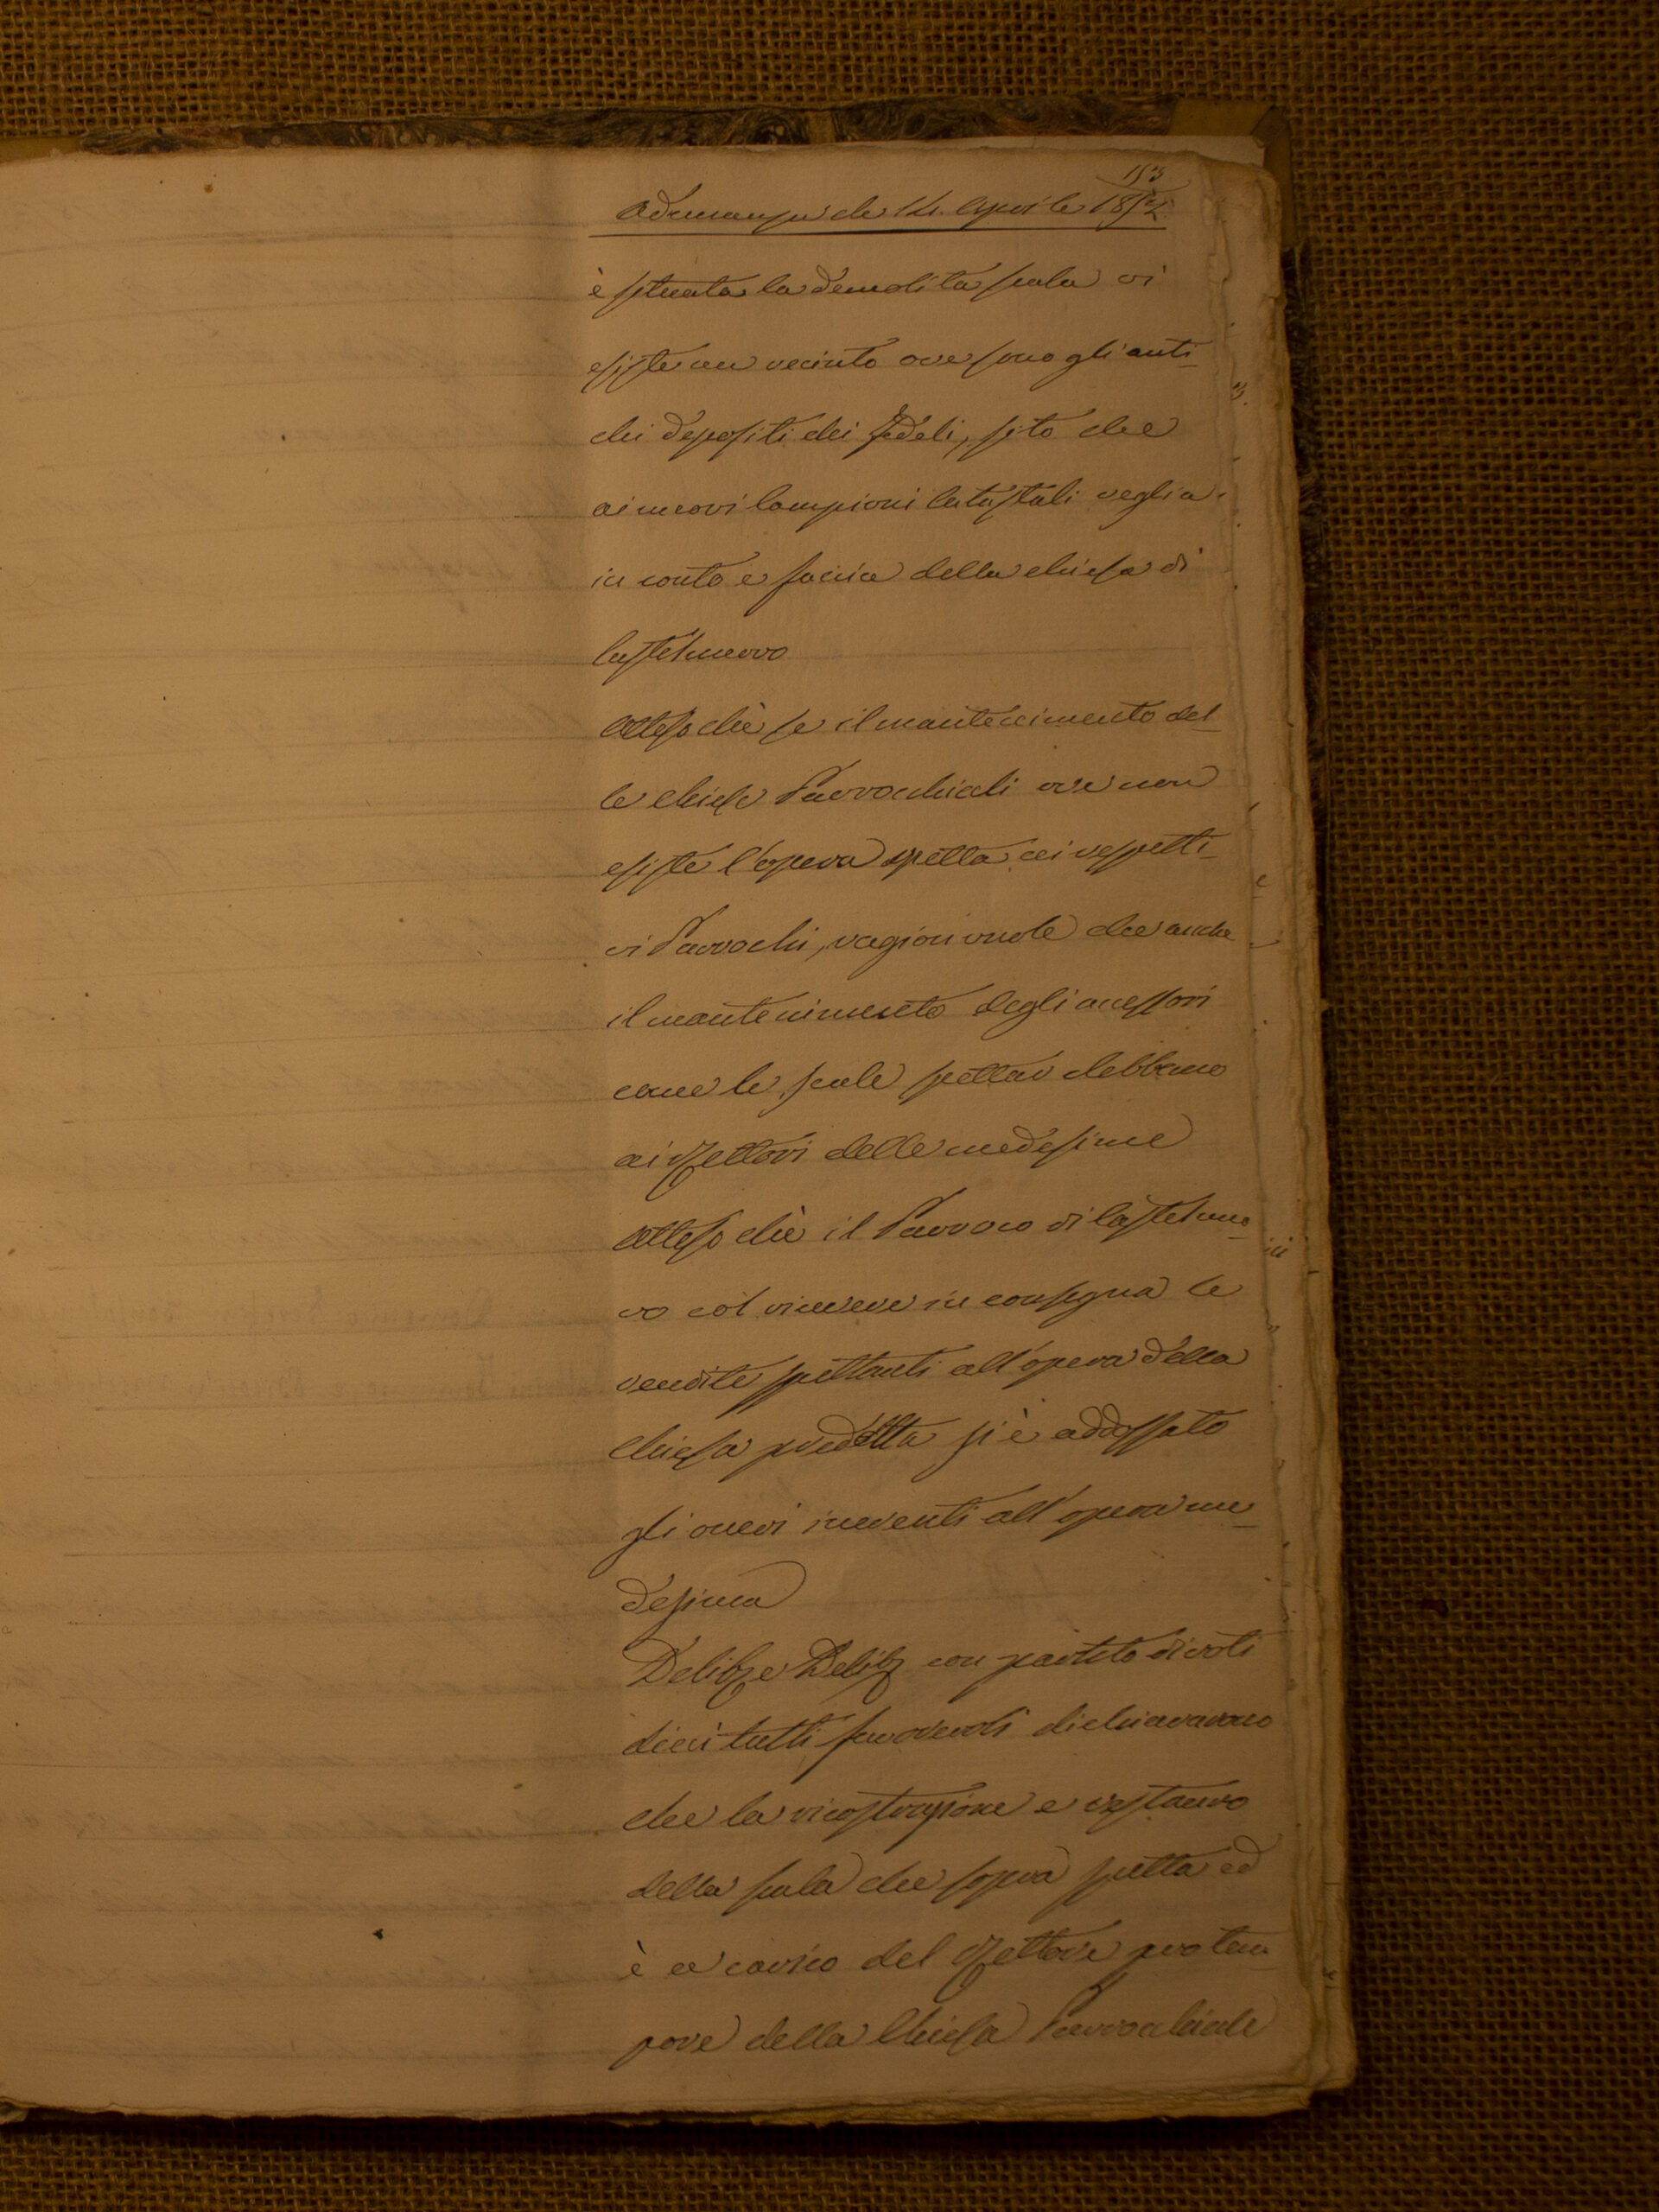 153
Adunanza de 14. Aprile 1852
è situata la demolita scala vi
esiste un recinto ove sono gli anti_
chi depositi dei Fedeli, sito che
ai nuovi Campioni Catastali veglia
in conto e faccia della chiesa di
Castelnuovo
Atteso chè se il mantenimento del_
le Chiese Parrocchiali ove non
esiste l'opera spetta ai respetti_
vi Parrochi, ragion vuole che anche
il mantenimento degli accessori
come le scale spettar debbano
ai Rettori delle medesime
Atteso chè il Parroco di Castelnuo_
vo col ricevere in consegna le
rendite spettanti all'opera della
Chiesa predetta si è addossato
gli oneri inerenti all'opera me_
desima
Delib. e Delib. con partito di voti
dieci tutti favorevoli dichiararono
che la ricostruzione e restauro
della scala che sopra spetta ed
è a carico del Rettore pro tem_
pore della Chiesa Parrocchiale